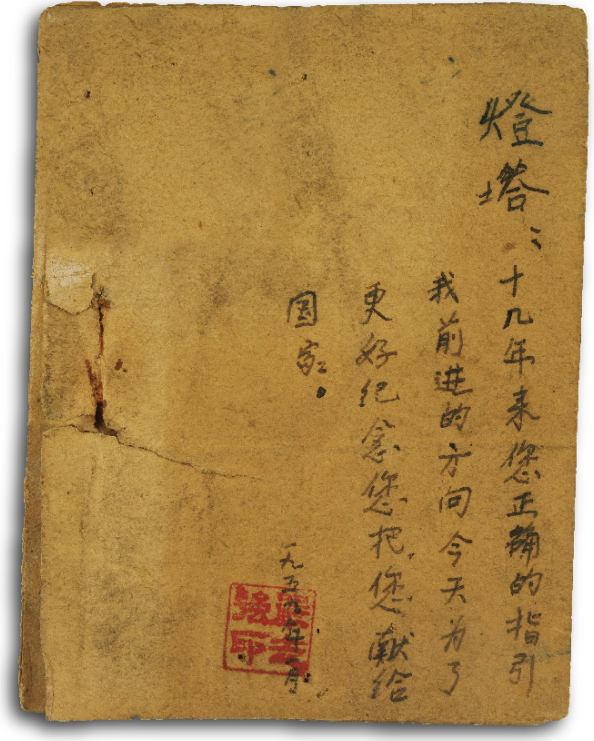 燈塔：十几年来您正确的指引
我前进的方向今天为了
更好纪念您把您献给
国家。
一九五九年一月
强印